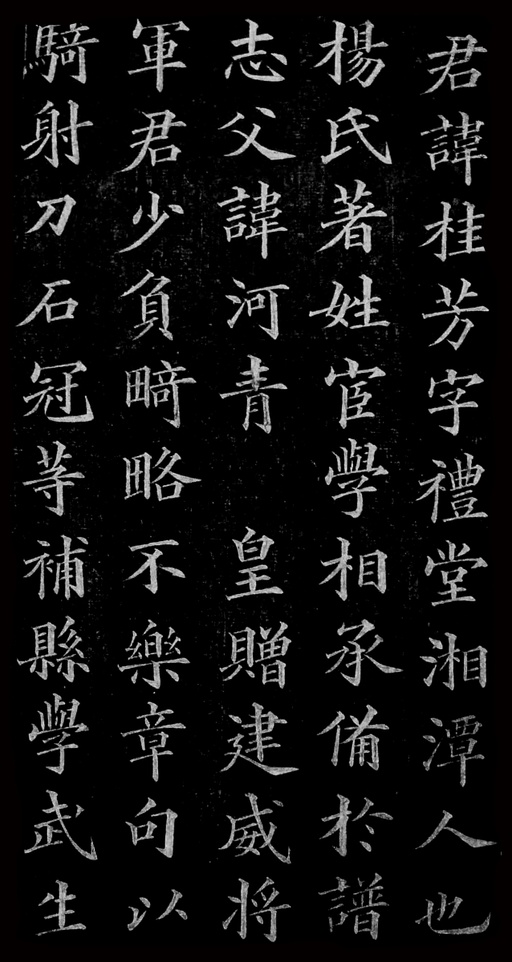 君諱桂芳字禮堂湘潭人也
楊氏著姓宦學相承備於譜
志父諱河青　皇贈建威将
軍君少負畸略不樂章句以
騎射刀石冠等補縣學武生